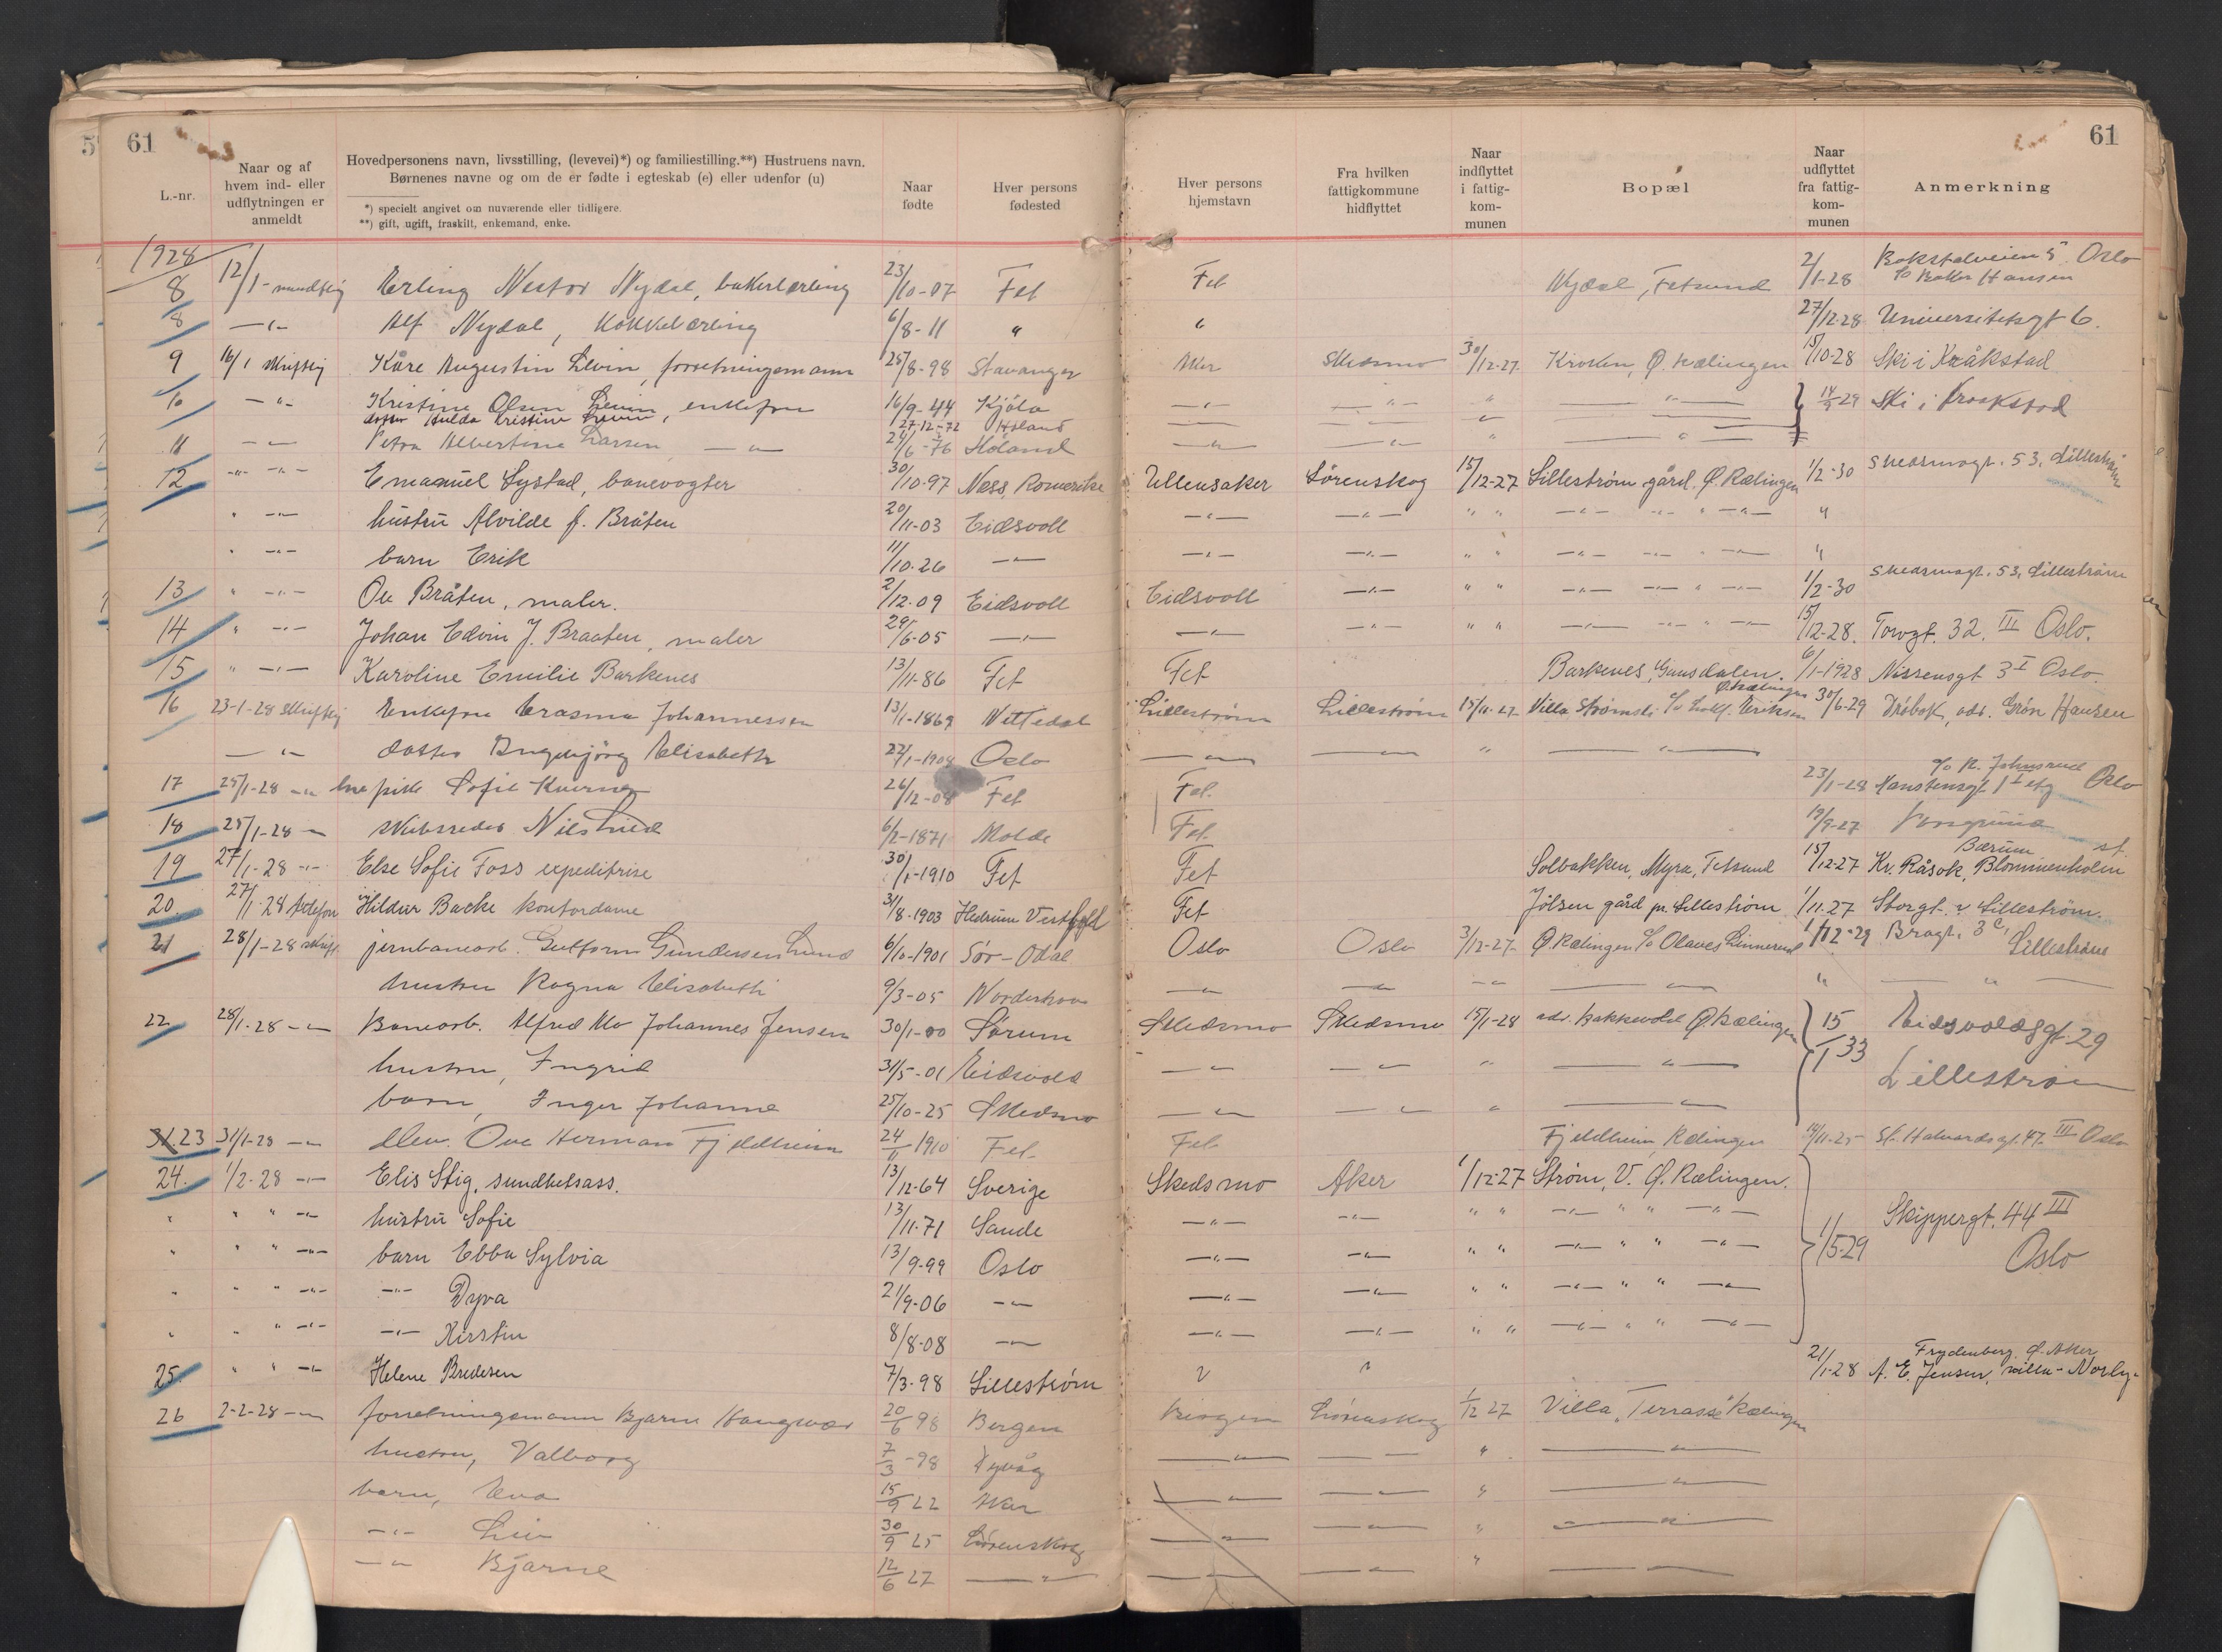 61
61
L.-nr.
Naar og af hvem ind- eller udflytningen er anmeldt
Hovedpersonens navn, livsstilling, (levevei)*) og familiestilling.**) Hustruens navn.
Børnenes navne og om de er fødte i egteskab (e) eller udenfor (u)
*) specielt angivet om nuværende eller tidligere.
**) gift, ugift, fraskilt, enkemand, enke.
Naar fødte
Hver persons fødested
Hver persons hjemstavn
Fra hvilken fattigkommune hidflyttet
Naar indflyttet i fattig-kom-munen
Bopæl
Naar udflyttet fra fattig-kom-munen
Anmerkning
1928
8 12/1 - mundtlig Erling Nestor Nydal, bakerlærling 23/10-07 Fet Fet Nydal, Fetsund 2/1-28 Oslo c/o Baker Hansen
8 -"- Alf Nydal, Kokkelærling 6/8-11 " " 27/12-28 Universitetsgt 6.
9 16/1 skriftlig Kåre Augustin Levin, forretningsmann 25/8-98 Stavanger Aker Skedsmo 30/12-27 Kroken, Ø. Rælingen 15/10-28 Ski i Kråkstad
10 -"- Kristine Olsen Levin, enkefrue 16/9-44 -"- -"- " -"- 14/9 29 Ski i Kraakstad
datter Hulda Kristine Levin 27-12-72 Høland
11 -"- Petra Albertine Larsen -"- 24/6-76 Høland -"- -"- " -"-
12 -"- -"- Emanuel Systad, banevogter 30/10-97 Næss, Romerike Ullensaker Lørenskog 15/12-27 Lillestrøm gård. Ø. Rælingen 1/2-30 Skedsmogt. 53, Lillestrøm
" -"- hustru Alvilde f. Bråten 20/11-03 Eidsvoll -"- -"- " " -"- -"- " -"- "
" -"- barn Erik 11/10-26 -"- -"- -"- " " -"- -"- " -"- "
13 " -"- Ole Bråten, maler. 2/12-09 Eidsvoll Eidsvoll -"- " " -"- -"- " -"- 1/2-30 Skedsmogt. 53, Lillestrøm
14 " -"- Johan Edvin J. Braaten, maler 29/6-05 -"- -"- -"- " " -"- -"- " -"- 15/12-28. Torvgt. 32. III Oslo.
15 " -"- Karoline Emilie Barkenes 13/11-86 Fet Fet Barkenes, Gansdalen. 6/1-1928 Nissensgt 3 I Oslo.
16 23-1-28 skriftlig Enkefrue Erasma Johannessen 13/1-1869 Nittedal Lillestrøm Lillestrøm 15/11-27 Villa Strømsli c/o Eriksen Ø. Rælingen 30/6-29 Drøbak, adr. Grøn Hansen
-"- datter Ingebjørg Elisabeth 22/1-1908 Oslo -"- -"- " -"-
17 25/1-28 -"- Sofie Kverner 26/12-08 Fet Fet. 23/1-28 c/o R. Johnsrud Oslo
18 25/1-28 -"- skibsreder Nils Lied 6/2-1871 Molde Fet 19/9-27
19 27/1-28 -"- Else Sofie Foss expeditrise 30/1-1910 Fet Fet Solbakken, Myra, Fetsund 15/12-27 Kv. Råsok, Blommenholm st. Bærum
20. 27/1-28 telefon Hildur Backe kontordame 31/8-1903 Hedrum Vestfold Fet Jølsen gård pr. Lillestrøm 1/11-27 Storgt. Lillestrøm.
21 28/1-28 skrift jernbanearb. Guttorm Gundersen Lund 6/10-1901 Sør-Odal Oslo Oslo 3/12-27 Ø. Rælingen c/o Olaves Linnerud 1/12-29 Bragt. 3c, Lillestrøm
hustru Ragna Elisabeth 9/3-05 Norderhov -"- -"- -"- -"- " -"-
22 28/1-28 -"- Banearb. Alfred Mo Johannes Jensen 30/1-00 Sørum Skedsmo Skedsmo 15/1-28 adr. Bakkevold Ø. Rælingen 15/1 33 Eidsvoldsgt. 29 Lillestrøm
hustru, Ingrid 31/5-01 Eidsvold -"- -"- " -"-
barn, Inger Johanne 25/10-25 Skedsmo -"- -"- " -"-
23 31/1-28 -"- elev. Ove Herman Fjeldheim 24/11 1910 Fet Fet Fjeldheim, Rælingen St. Halvardsgt. 47. III Oslo
24. 1/2-28 -"- Elis Stig, sundhetsass. 13/12-64 Sverige Skedsmo Aker 1/12-27 Strøm, V. Ø. Rælingen. 1/5-29 Skippergt. 44 III Oslo
" " " -"- hustru Sofie 13/11-71 Sande -"- -"- " " -"- " " -"-
" " " -"- barn Ebba Sylvia 13/9-99 Oslo -"- -"- " " -"- " " -"-
" " " -"- -"- Dyva 21/9-06 -"- -"- -"- " " -"- " " -"-
" " " -"- -"- Kirstin 8/8-08 -"- -"- -"- " " -"- " " -"-
25. " " -"- Helene Bredesen 7/3-98 Lillestrøm 21/1-28 Frydenberg Ø. Aker A. E. Jensen, villa-Norby-
26 2-2-28 -"- forretningsmann Bjarne 20/6 98 Bergen Bergen Lørenskog 1/12 27 Villa "Terrasse" Rælingen
hustru, Valborg 7/3-98 -"- -"- " -"-
barn, Eva 15/9 22 Aker -"- -"- " -"-
-"- 30/9 25 Lørenskog -"- -"- " -"-
-"- Bjarne 12/6 27 -"- -"- -"- " -"-